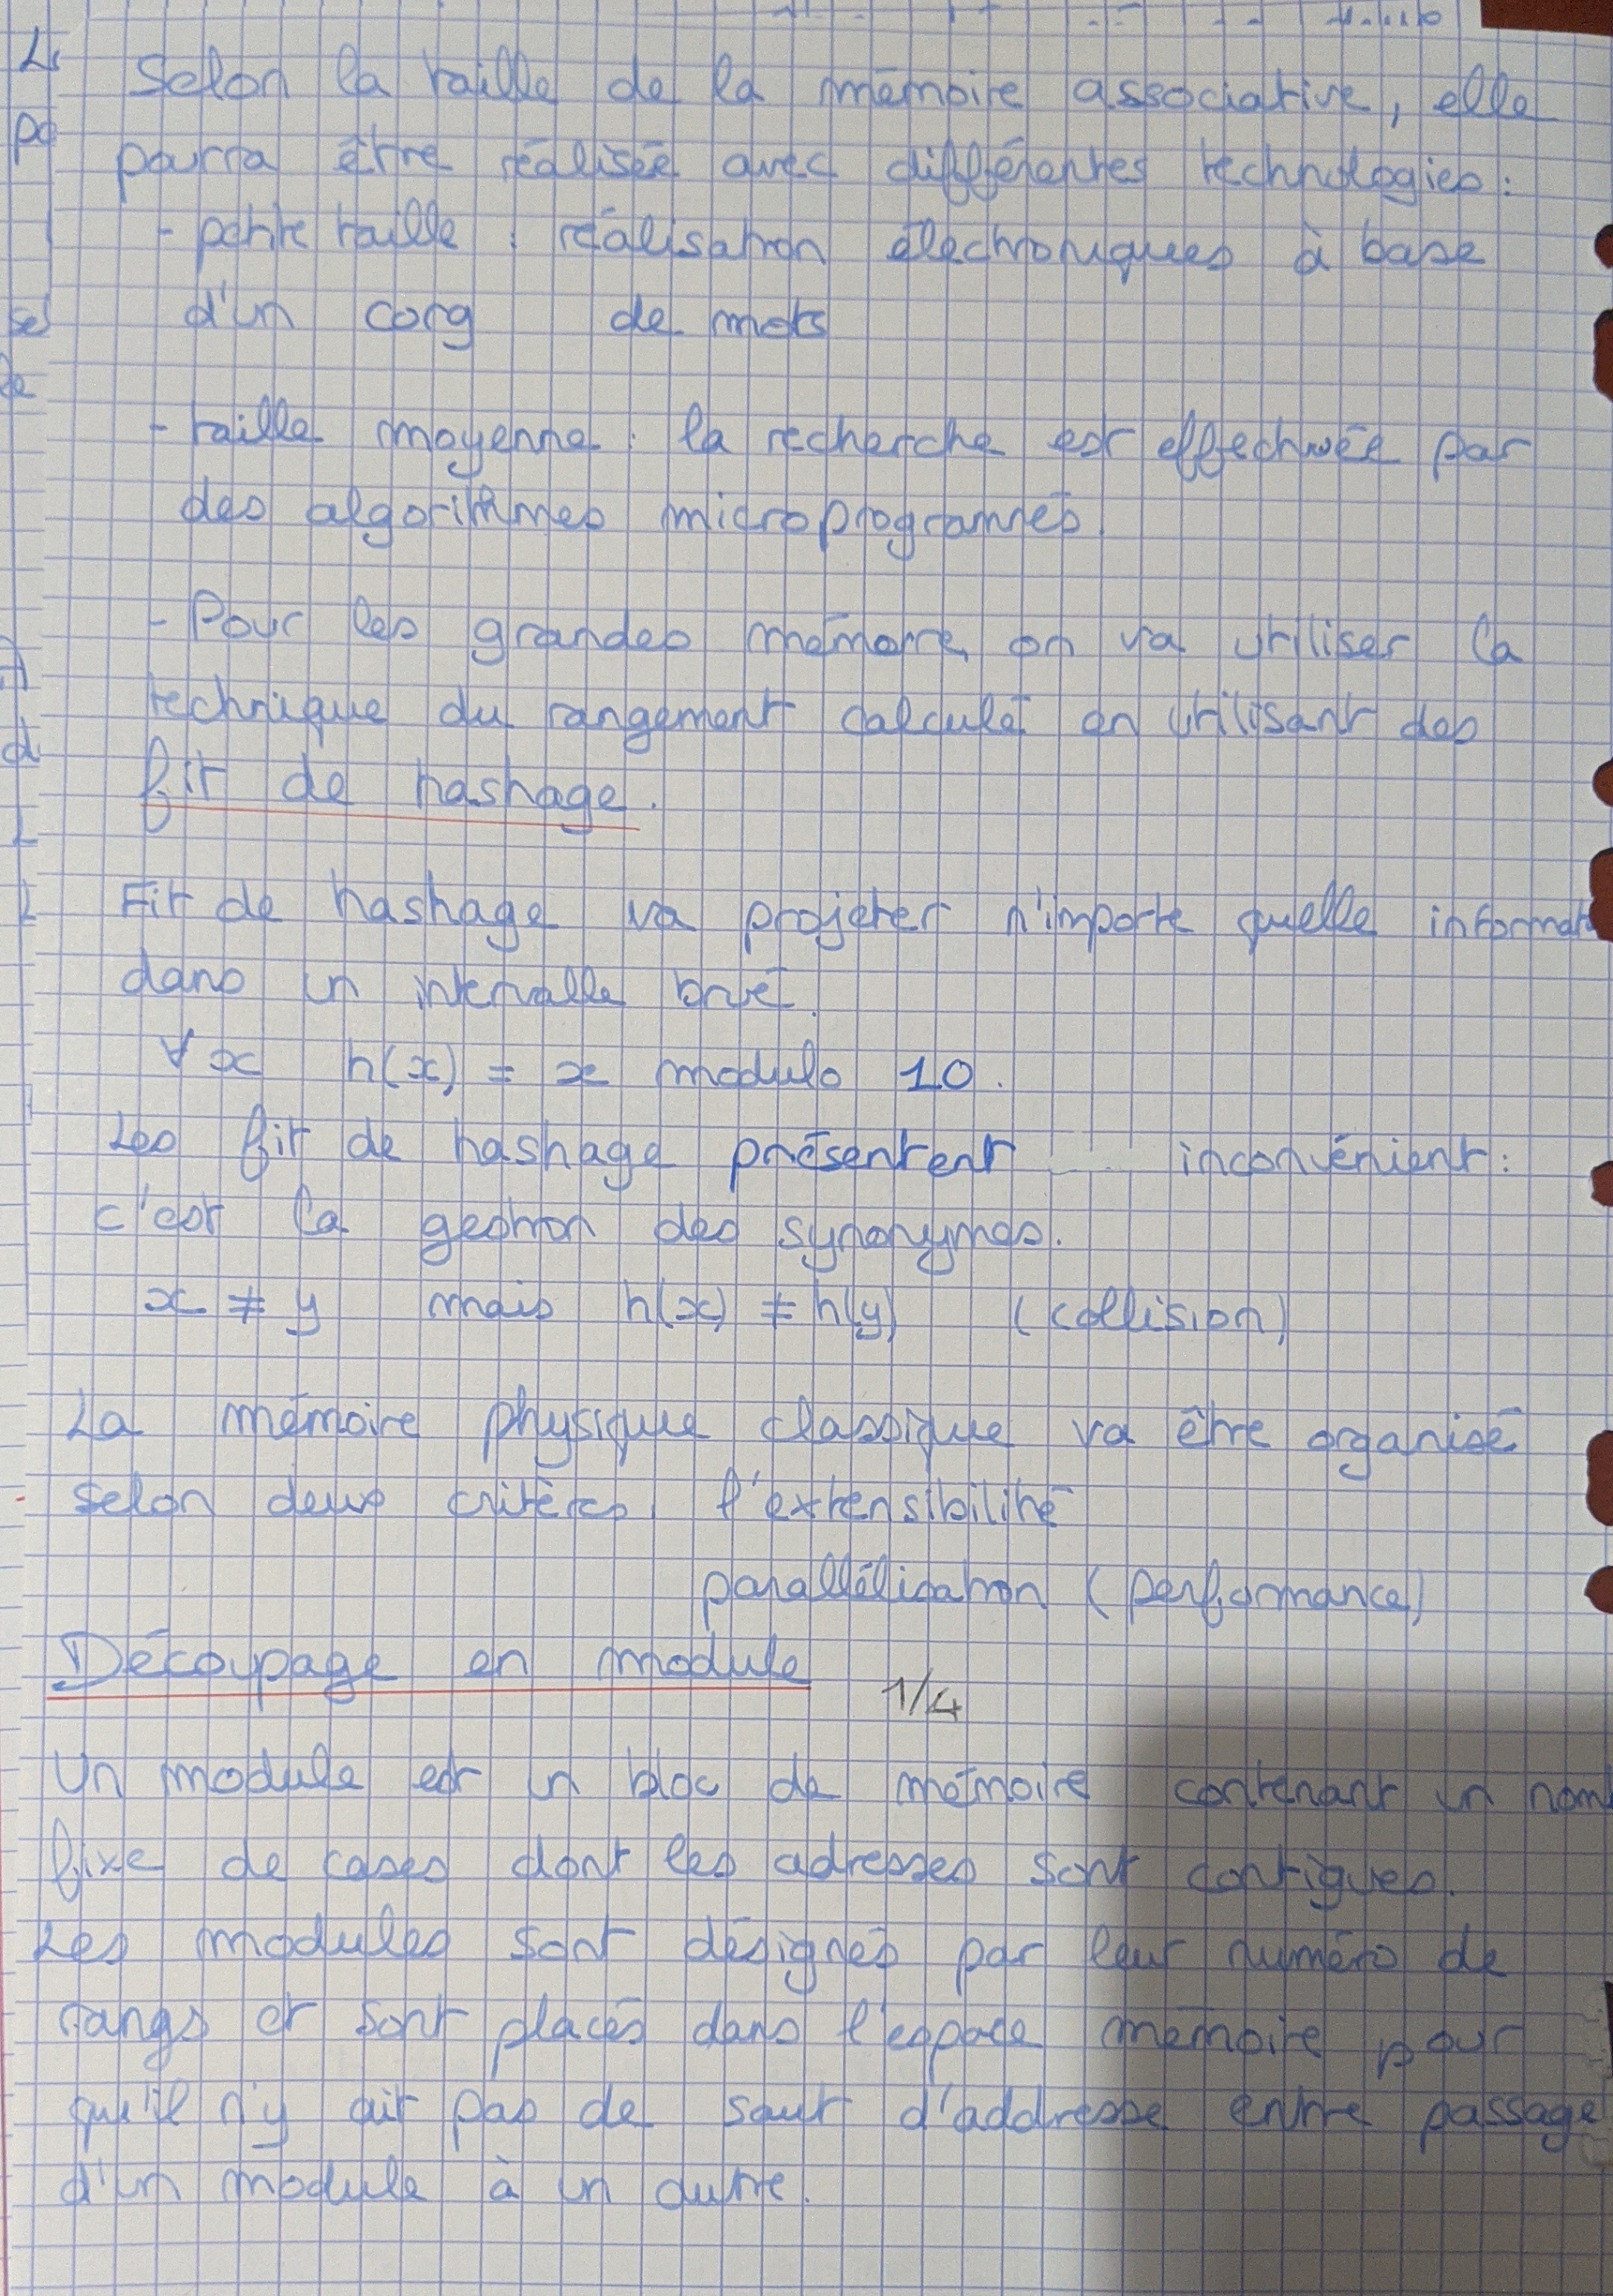 Selon la taille de la mémoire associative, elle
pourra être réalisée avec différentes technologies :
- petite taille : réalisation électroniques à base
d'un corg de mots
- taille moyenne : la recherche est effectuée par
des algorithmes microprogrammés.
- Pour les grandes mémoire, on va utiliser la
technique du rangement calculé en utilisant des
fit de hashage.
Fit de hashage va projeter n'importe quelle informat
dans un intervalle
∀x h(x) = x modulo 10.
Les fit de hashage présentent inconvénient :
c'est la gestion des synonymes.
x ≠ y mais h(x) ≠ h(y) (collision)
La mémoire physique classique va être organisé
selon deux critères l'extensibilité
parallélisation (performance)
Découpage en module 1/4
Un module est un bloc de mémoire contenant un nom
fixe de cases dont les adresses sont contigues.
Les modules sont désignés par leur numéro de
rangs et sont placés dans l'espace mémoire pour
qu'il n'y ait pas de saut d'addresse entre passage
d'un module à un autre.